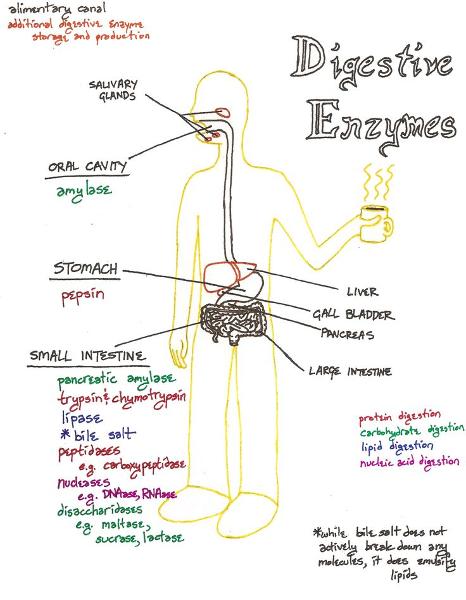 alimentary canal
additional digestive enzyme
storage and production
Digestive
Enzymes
SALIVARY
GLANDS
ORAL CAVITY
amylase
STOMACH
pepsin
LIVER
GALL BLADDER
PANCREAS
LARGE INTESTINE
SMALL INTESTINE
pancreatic amylase
trypsin & chymotrypsin
lipase
*bile salt
peptidases
e.g. carboxypeptidase
nucleases
e.g. DNAase, RNAase
disaccharidases
e.g. maltase,
sucrase, lactase
protein digestion
carbohydrate digestion
lipid digestion
nucleic acid digestion
*while bile salt does not
actively break down any
molecules, it does emulsify
lipids